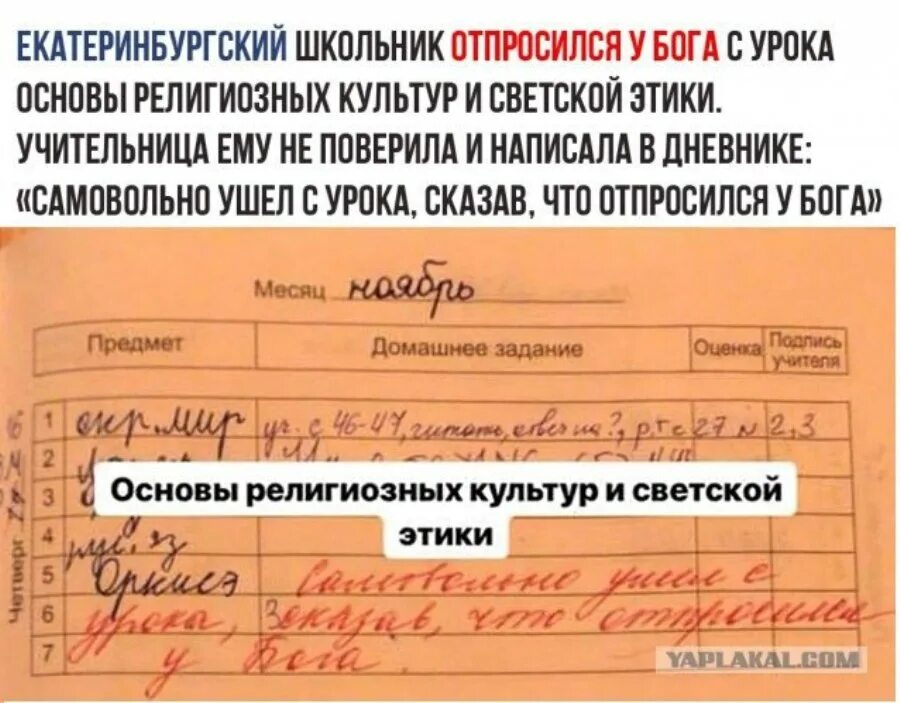 ЕКАТЕРИНБУРГСКИЙ ШКОЛЬНИК ОТПРОСИЛСЯ У БОГА С УРОКА
ОСНОВЫ РЕЛИГИОЗНЫХ КУЛЬТУР И СВЕТСКОЙ ЭТИКИ.
УЧИТЕЛЬНИЦА ЕМУ НЕ ПОВЕРИЛА И НАПИСАЛА В ДНЕВНИКЕ:
«САМОВОЛЬНО УШЕЛ С УРОКА, СКАЗАВ, ЧТО ОТПРОСИЛСЯ У БОГА»
Месяц ноябрь
Предмет Домашнее задание Оценка Подпись учителя
1 окр. мир уч. с 46-47, читать, ответ на ?, р.т с 27 № 2,3
2
3
Основы религиозных культур и светской
этики
4 рус. яз
5 Оркисэ Самовольно ушел с
6 урока, сказав, что отпросился
7 у Бога.
Четверг
YAPLAKAL.COM